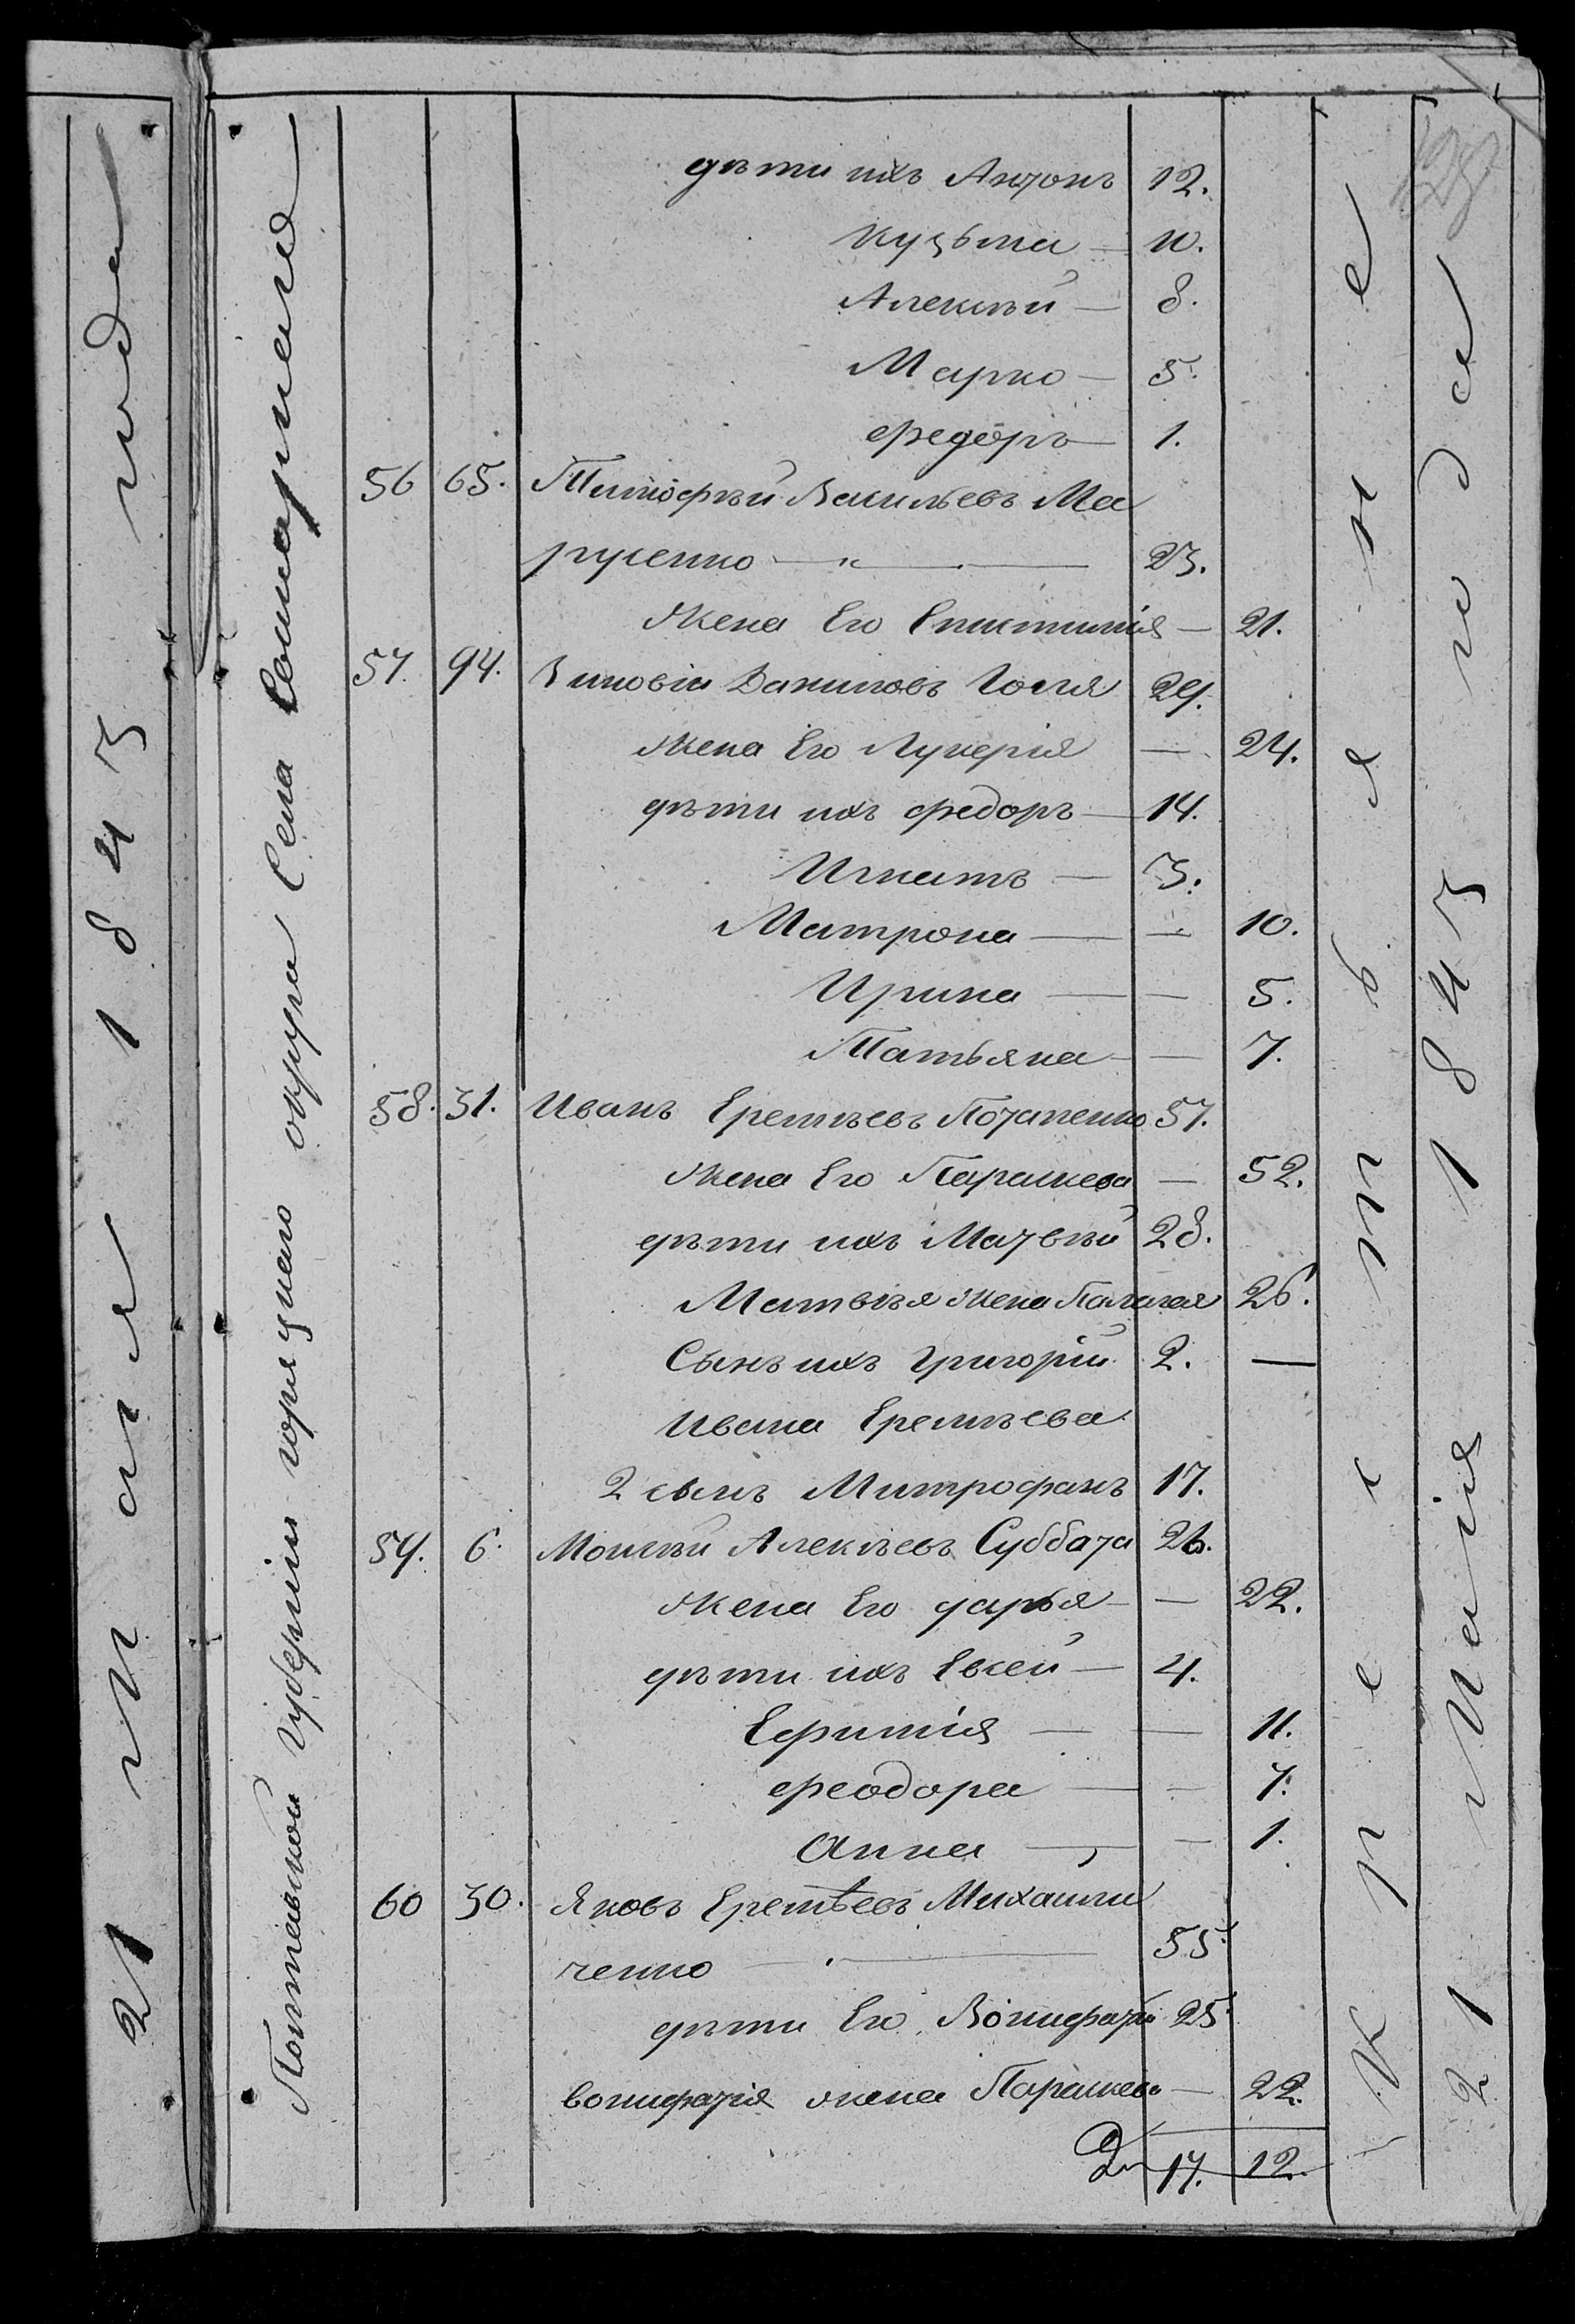 21 Мая 1843 года
Полтавской Губерніи округа Села
дѣти ихъ Антонъ 12.
Кузьма — 10.
Алексѣй — 8.
Марко — 5.
Федоръ — 1.
56 65. Тимофѣй Васильевъ Ма
русенко — 23.
Жена Его — 21.
57. 94. Зиновій Даниловъ Голя 29.
Жена Его Лукерія — 24.
дѣти ихъ Федоръ — 14.
Игнатъ — 3.
Матрона — — 10.
Ирина — — 5.
Татьяна — — 7.
58. 31. Иванъ Еремѣевъ Потапенко 57.
Жена Его Параскева — 52.
дѣти ихъ Матвѣй 28.
Матвѣя жена Палагея 26.
Сынъ ихъ Григорій 2. —
Ивана Еремѣева
2 сынъ Митрофанъ 17.
59. 6. Моисѣй Алексѣевъ Суббота 26.
Жена Его Дарья — — 22.
дѣти ихъ Евсей — 4.
Ефимія — — 11.
Феодора — — 7.
Анна — — 1.
60 30. Яковъ Еремѣевъ Михайли
ченко — 55.
дѣти Его Вонифатій 25.
Вонифатія жена Параскева — 22.
17. 12.
Крестьяне
21 Маія 1843 года